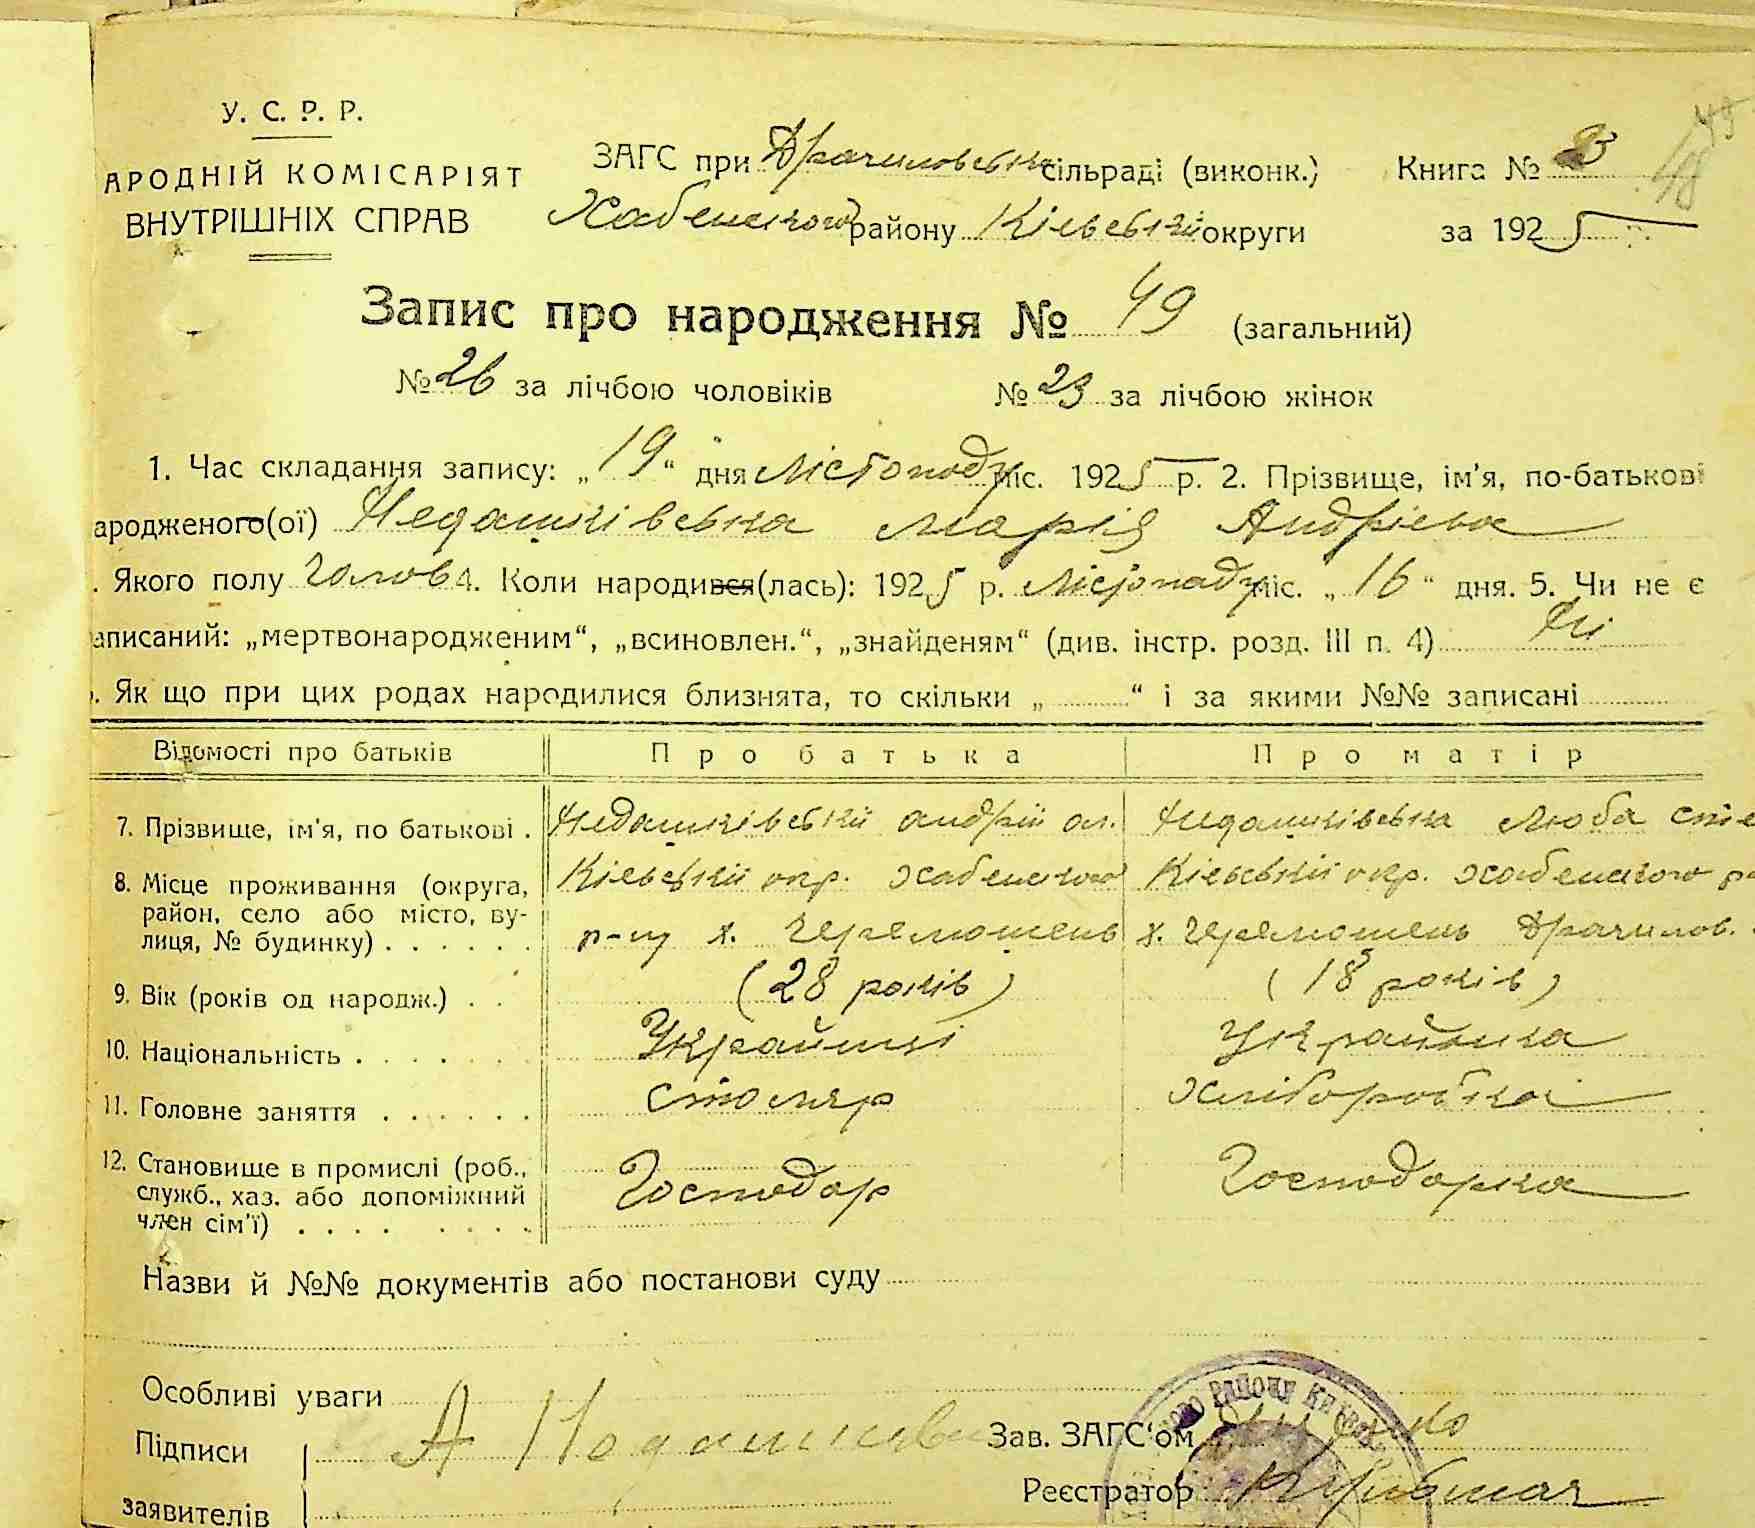 У. С. Р. Р.
АРОДНІЙ КОМІСАРІЯТ
ВНУТРІШНІХ СПРАВ
ЗАГС при Драчиловськ сільраді (виконк.)
Хабенского району Кієвській округи
Книга № 3
за 1925 р.
49
48
Запис про народження № 49 (загальний)
№ 26 за лічбою чоловіків № 23 за лічбою жінок
1. Час складання запису: „19“ дня Лістопаду міс. 1925 р. 2. Прізвище, ім'я, по-батькові
ародженого(ої) Недашківська Марія Андрієва
. Якого полу 4. Коли народився(лась): 1925 р. Лісіопаду міс. „16“ дня. 5. Чи не є
аписаний: „мертвонародженим“, „всиновлен.“, „знайденям“ (див. інстр. розд. III п. 4) Ні
. Як що при цих родах народилися близнята, то скільки „ “ і за якими №№ записані
Відомості про батьків Про батька Про матір
7. Прізвище, ім'я, по батькові . Недашківській Андрій ол. Недашківська Люба Сте
8. Місце проживання (округа, район, село або місто, вулиця, № будинку) . . . . . . Кієвській окр. Хабенского р-ну х. Черемошень Кієвській окр. Хабенского ра х. Черемошень Драчилов.
9. Вік (років од народж.) . . (28 років) (18 років)
10. Національність . . . . . . Українці Українка
11. Головне заняття . . . . . . Столяр Хліборобка
12. Становище в промислі (роб., служб., хаз. або допоміжний член сім'ї) . . . . . . . . Господар Господарка
Назви й №№ документів або постанови суду
Особливі уваги
Підписи
заявителів
А Недашківс
Зав. ЗАГС'ом
Реєстратор
РАЙОНУ КИЇВС